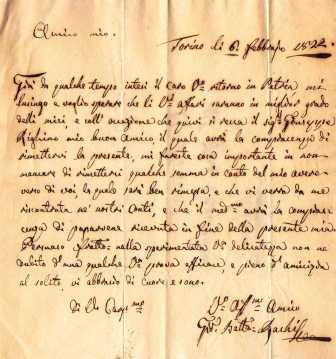 Amico mio.
Torino li 6 febbraio 1822
Già da qualche tempo intesi il caro Vo ritorno in Patria mi
lusingo e voglio sperare che li Vi affari saranno in miglior stato
delli miei, e coll'occasione che quivi si reca il sigr Giuseppe
Righino mio buon Amico, il quale avrà la compiacenza di
rimettervi la presente, mi fareste cosa importante in non
mancare di rimettervi qualche somma in conto del mio avere
verso di voi la quale sarà ben rimessa, e che vi verrà da me
riscontrata ne' nostri Conti, e che il medmo avrà la compia
cenza di passarvene ricevuta in fine della presente mia
Persuaso nella sperimentata Va delicatezza non ne
dubito d'una qualche Va prova efficace, e pieno d'amicizia
al solito, vi abbraccio di cuore e sono.
Di Vo Carmo
Vo Affmo Amico
Gio. Batta